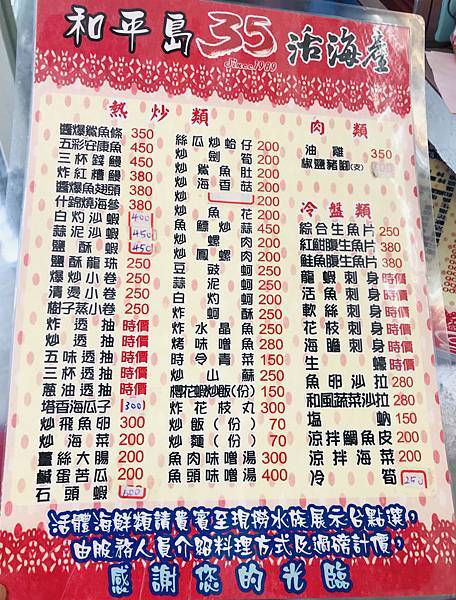 和平島35活海產
Since.1989
熱炒類
醬爆鯊魚條 350
五彩安康魚 450
三杯錢鰻 450
炸紅糟鰻 380
醬爆魚翅頭 380
什錦燒海參 380
白灼沙蝦 400
蒜泥沙蝦 450
鹽酥蝦 450
鹽酥龍珠 250
爆炒小卷 250
清燙小卷 250
樹子蒸小卷 250
炸透抽 時價
炒透抽 時價
五味透抽 時價
三杯透抽 時價
蔥油透抽 時價
塔香海瓜子 300
炒飛魚卵 300
炒海菜 200
薑絲大腸 200
鹹蛋苦瓜 200
石頭蝦 600
絲瓜炒蛤仔 200
炒劍筍 200
炒鯊魚肚 200
炒海香菇 200
炒
炒魚花 200
魚鰾炒蒜 450
炒螺肉 200
炒鳳螺肉 200
豆豉蚵 250
蒜泥蚵 250
白灼蚵 200
炸蚵酥 200
炸水晶魚 250
烤味噌魚 280
時令青菜 150
炒山蘇 250
櫻花蝦炒飯(份) 150
炸花枝丸 300
炒飯(份) 70
炒麵(份) 70
魚肉味噌湯 300
魚頭味噌湯 400
肉類
油雞 350
椒鹽豬腳(支)
冷盤類
綜合生魚片 250
紅魽腹生魚片 380
鮭魚腹生魚片 380
龍蝦刺身 時價
活魚刺身 時價
軟絲刺身 時價
花枝刺身 時價
海膽刺身 時價
生蠔 時價
魚卵沙拉 280
和風蔬菜沙拉 280
塩蚋 150
涼拌鯛魚皮 200
涼拌海菜 200
冷筍 250
活體海鮮類請貴賓至現撈水族展示台點選,
由服務人員介紹料理方式及過磅計價,
感謝您的光臨